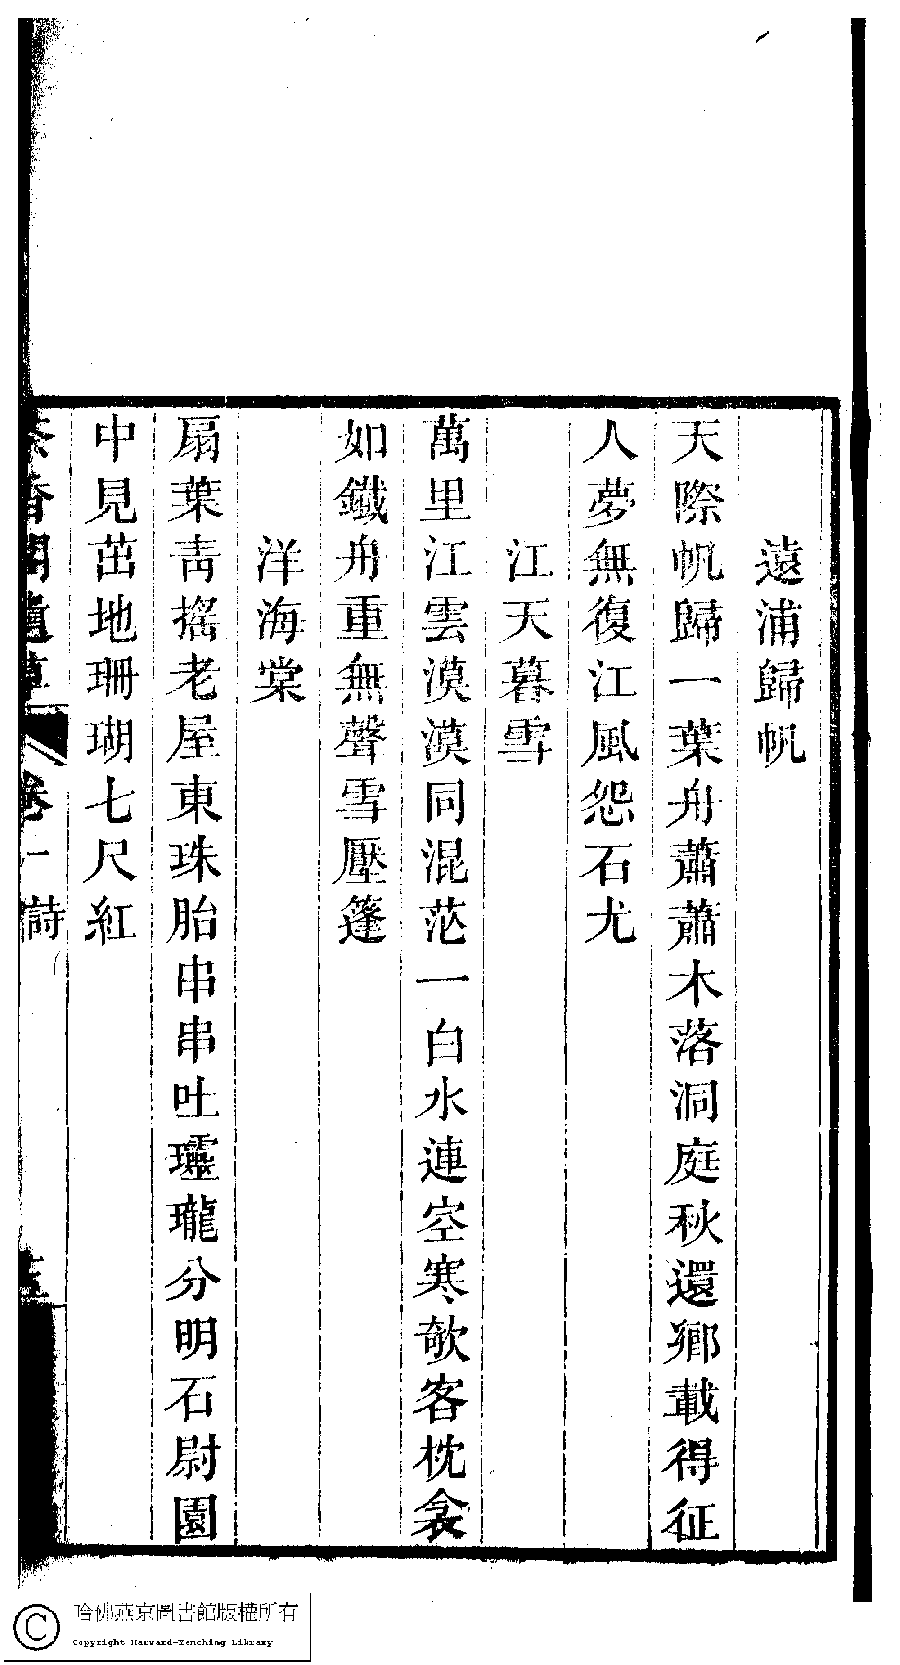 遠浦歸帆
天際帆歸一葉舟蕭蕭木落洞庭秋還鄉載得征
人夢無復江風怨石尤
江天暮雪
萬里江雲漠漠同混茫一白水連空寒欹客枕衾
如鐵舟重無聲雪壓篷
洋海棠
扇葉靑搖老屋東珠胎串串吐瓏分明石尉園
中見茁地珊瑚七尺紅
香閣遺草 卷一 詩
哈佛燕京圖書館版權所有
Copyright Harvard-Yenching Library